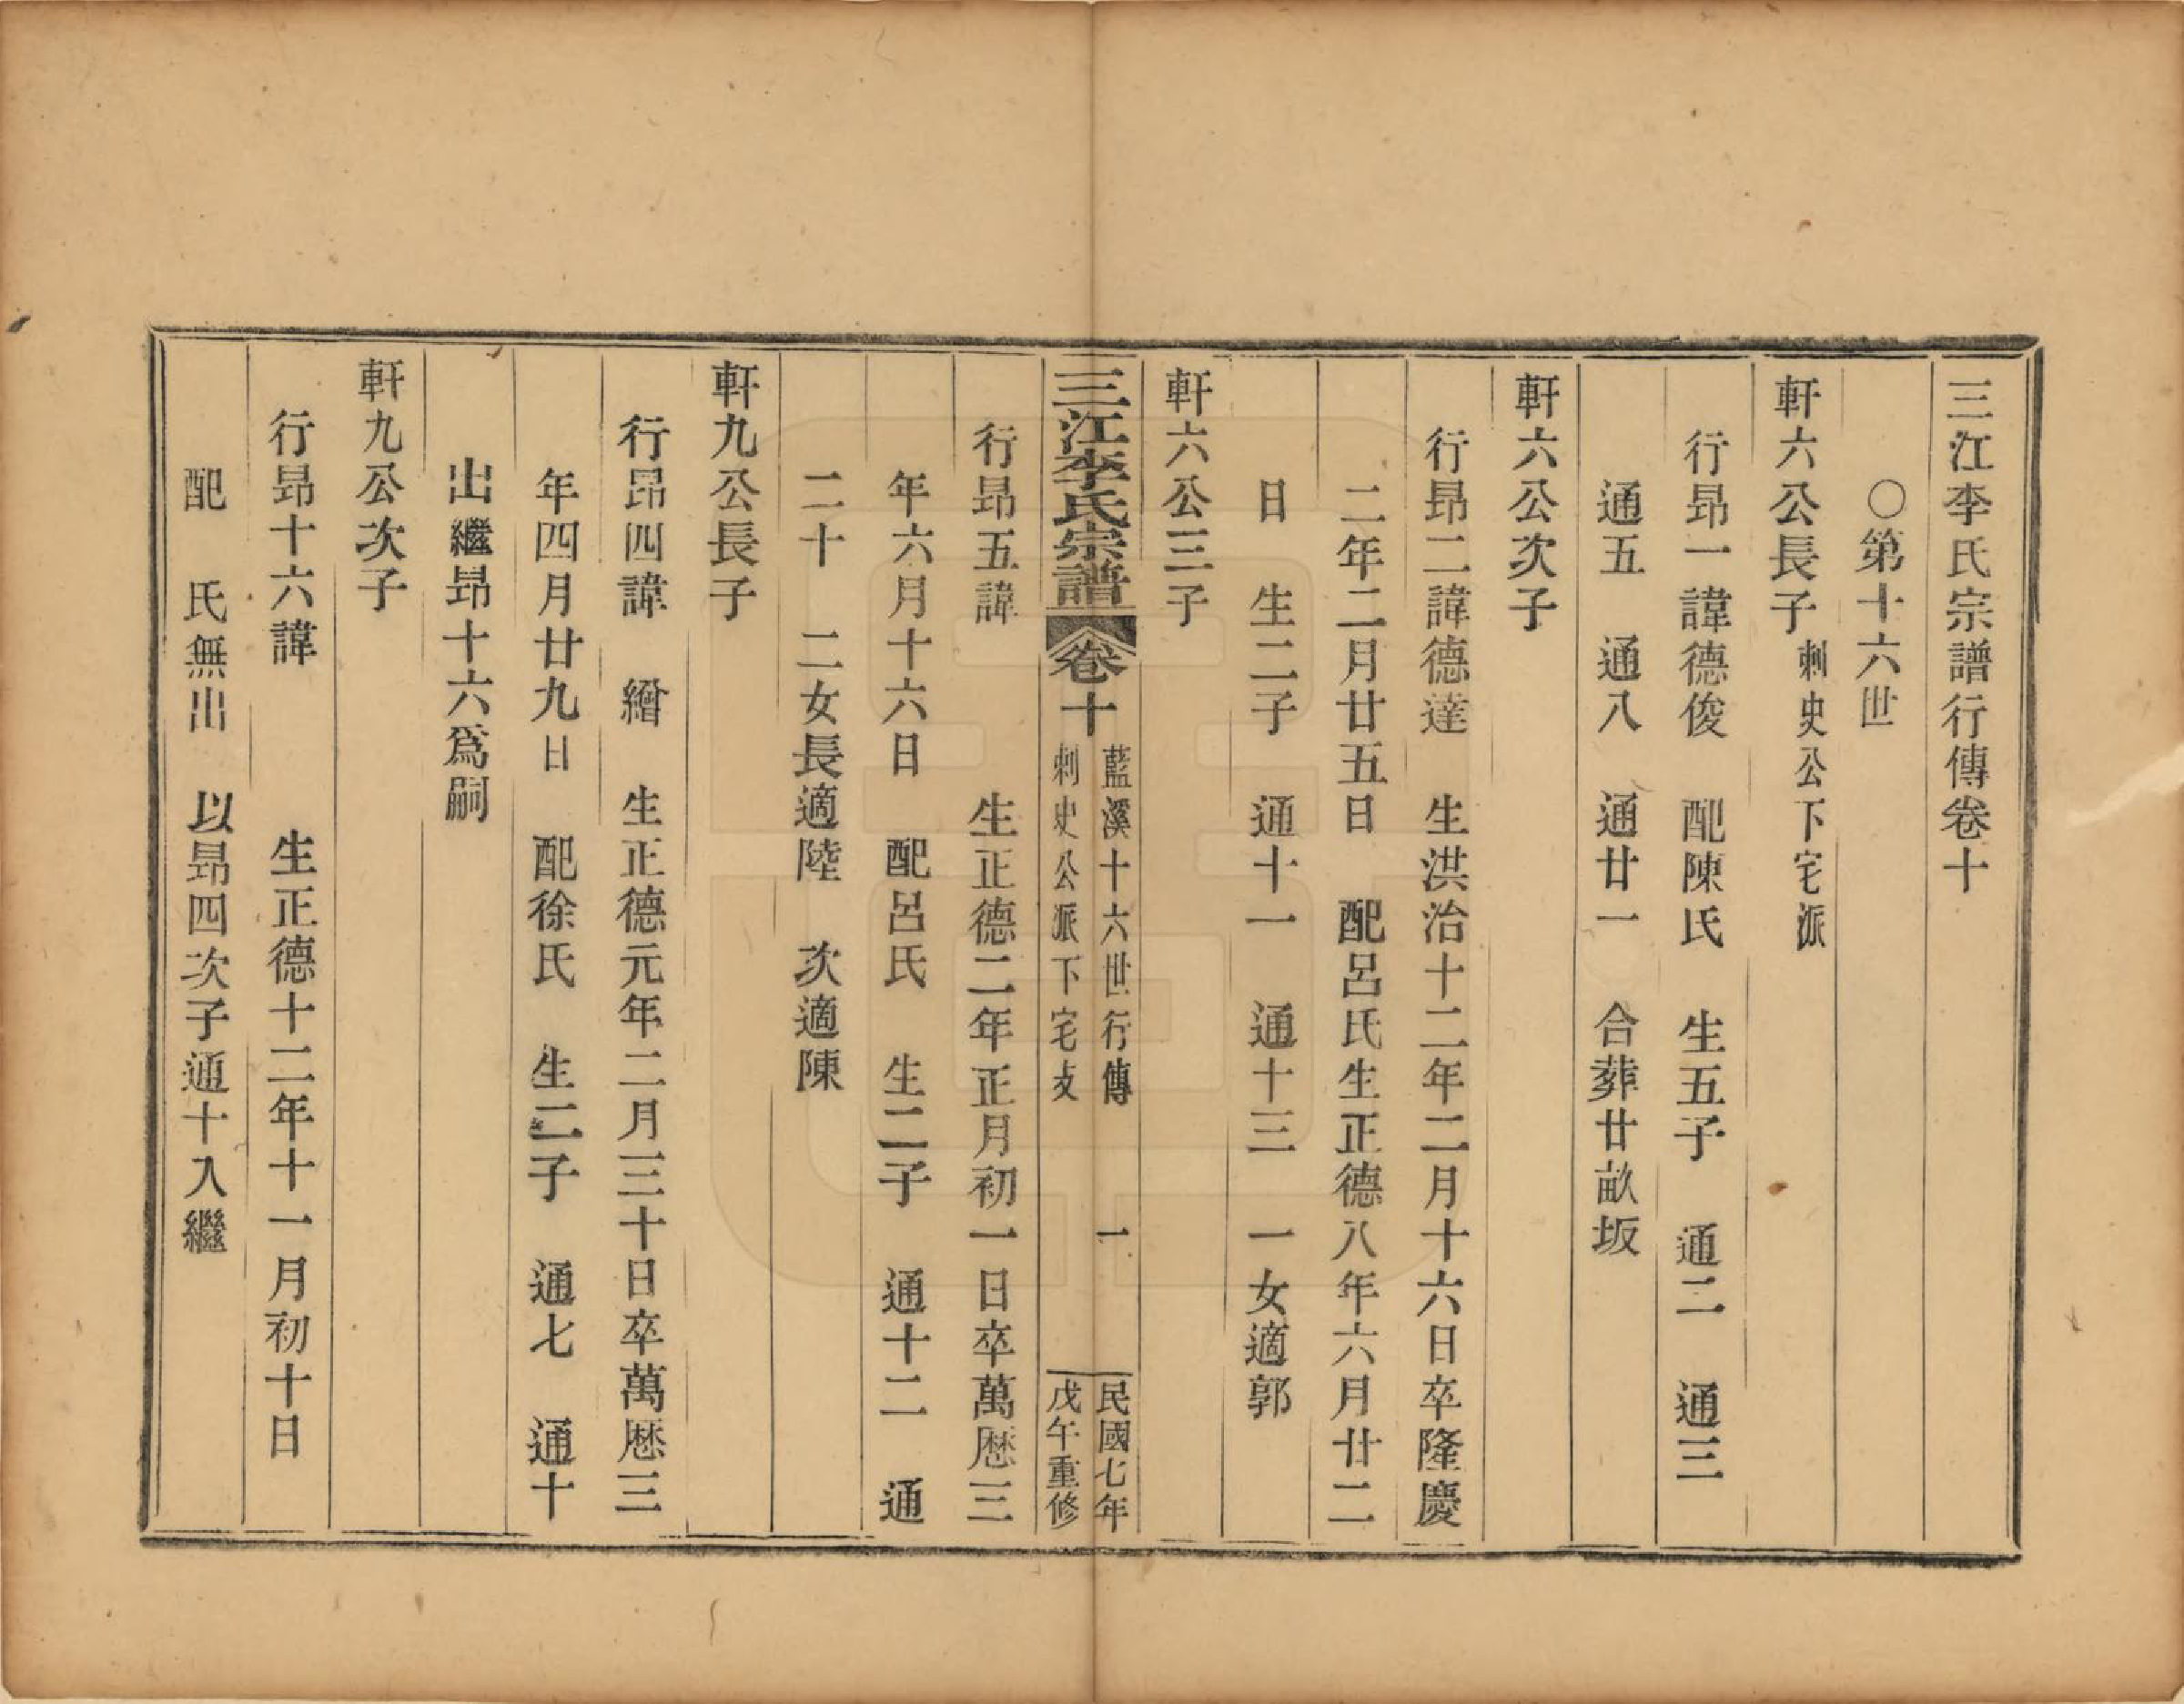 三江李氏宗譜行傳卷十
○第十六世
軒六公長子 刺史公下宅派
行昂一諱德俊 配陳氏 生五子 通二 通三
通五 通八 通廿一 合葬廿畝坂
軒六公次子
行昂二諱德達 生洪治十二年二月十六日卒隆慶
二年二月廿五日 配呂氏生正德八年六月廿二
日 生二子 通十一 通十三 一女適郭
軒六公三子
三江李氏宗譜 卷十 藍溪十六世行傳 一 民國七年
刺史公派下宅支 戊午重修
行昂五諱 生正德二年正月初一日卒萬厯三
年六月十六日 配呂氏 生二子 通十二 通
二十 二女長適陸 次適陳
軒九公長子
行昂四諱 繒 生正德元年二月三十日卒萬厯三
年四月廿九日 配徐氏 生二子 通七 通十
出繼昂十六爲嗣
軒九公次子
行昂十六諱 生正德十二年十一月初十日
配 氏無出 以昂四次子通十入繼